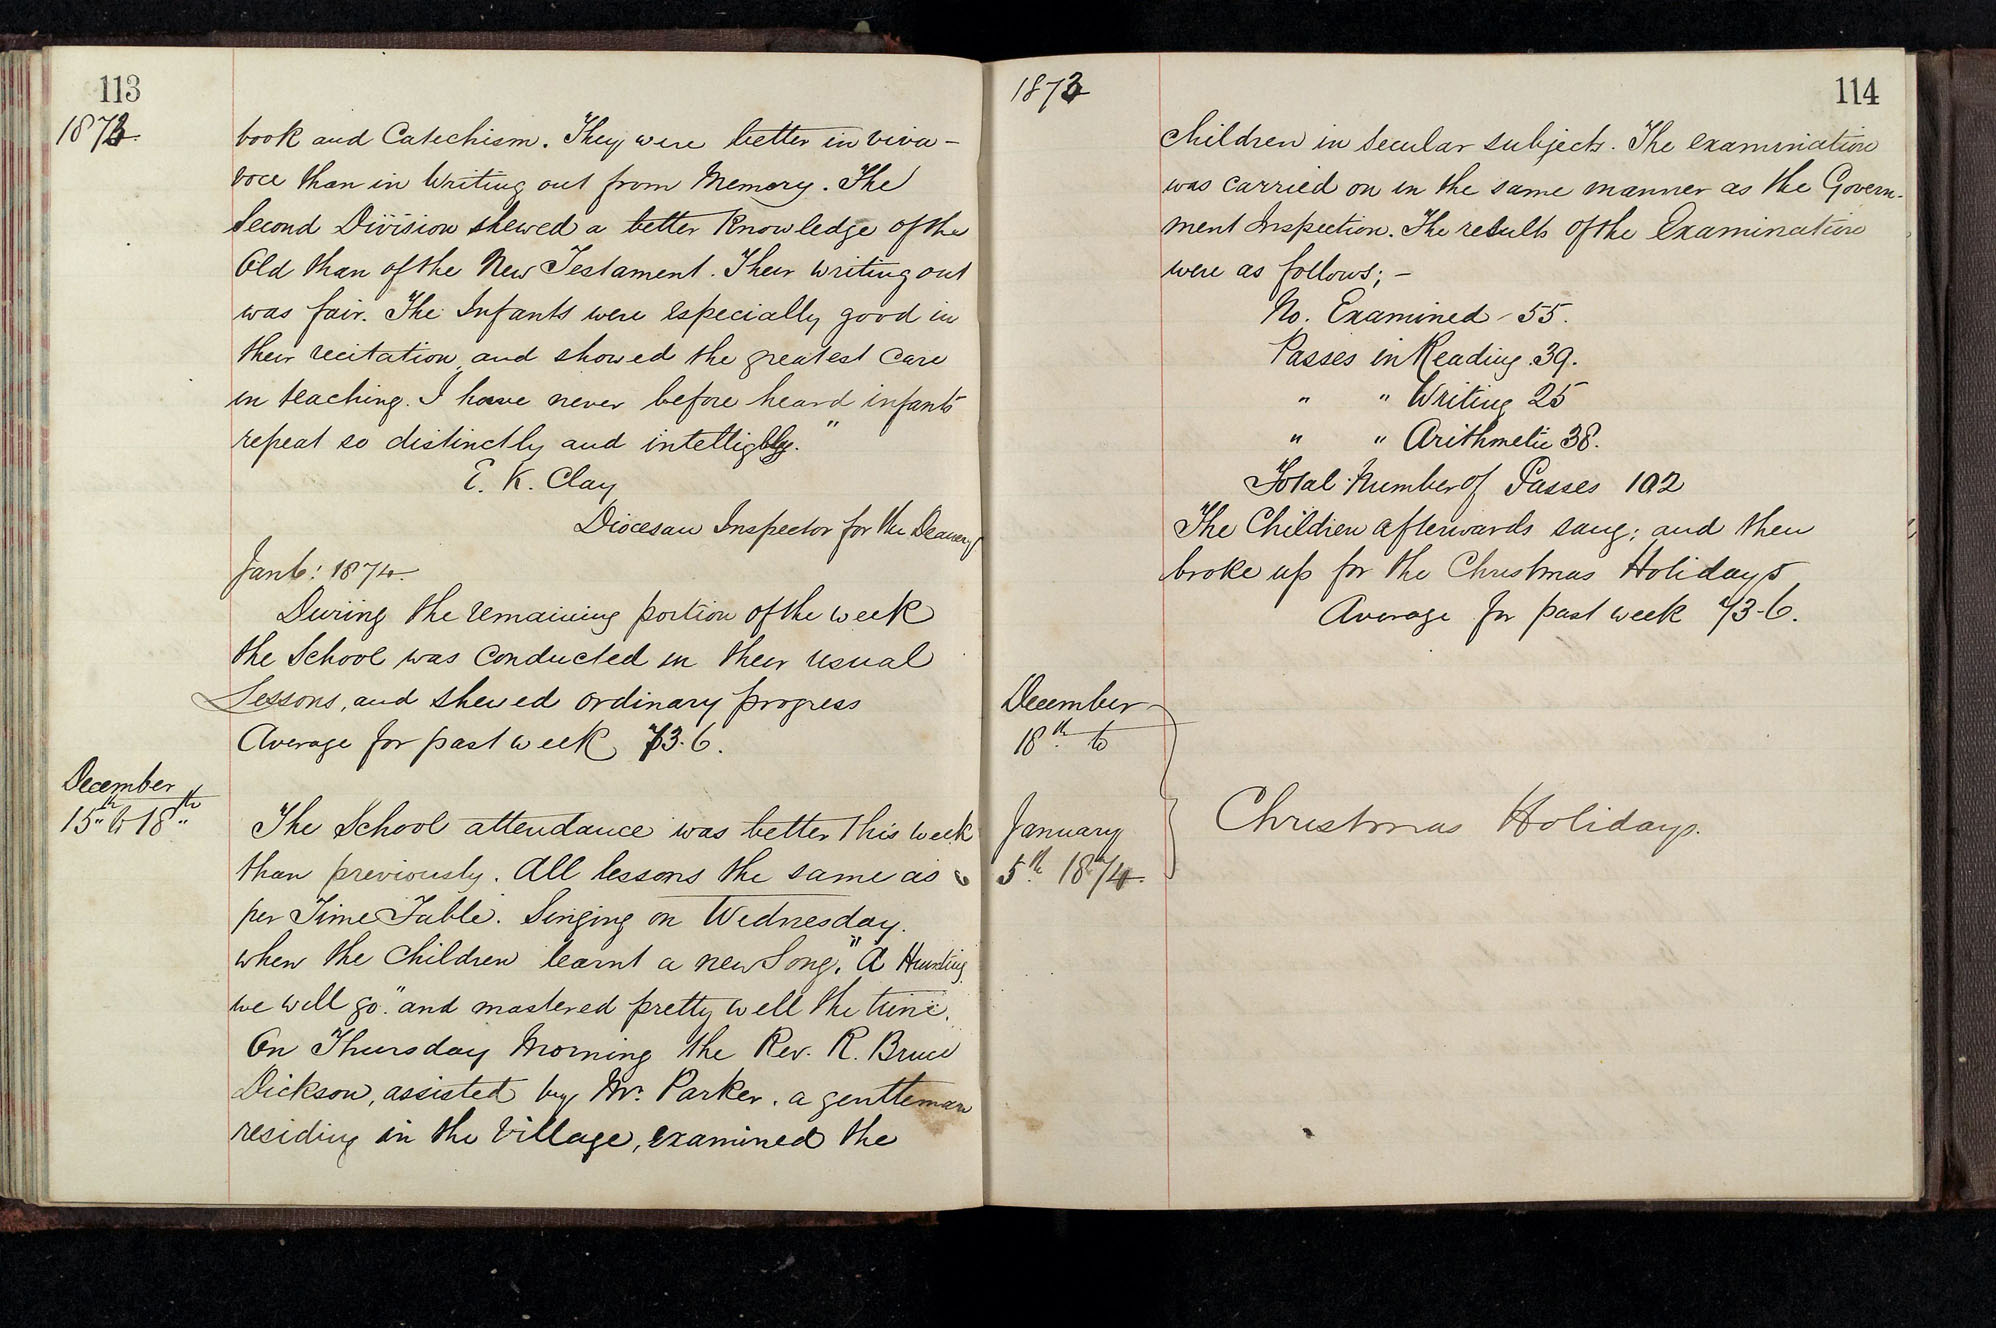 113
1873.
book and Catechism. They were better in viva-
voce than in Writing out from Memory. The
Second Division shewed a better Knowledge of the
Old than of the New Testament. Their writing out
was fair. The Infants were especially good in
their recitation and showed the greatest care
in teaching. I have never before heard infants
repeat so distinctly and intelligibly."
E. K. Clay
Diocesan Inspector for the Deanery
Jan 6: 1874.
During the remaining portion of the week
the School was conducted in their usual
Lessons, and shewed ordinary progress
Average for past week 73.6.
December
15th to 18th
The School attendance was better this week
than previously. All lessons the same as
per Time Table. Singing on Wednesday.
when the Children learnt a new Song, "A Hunting
we will go" and mastered pretty well the tune.
On Thursday Morning the Rev. R. Bruce
Dickson, assisted by Mr. Parker, a gentleman
residing in the Village, examined the
1873
114
Children in Secular subjects. The examination
was carried on in the same manner as the Govern-
ment Inspection. The results of the Examination
were as follows; -
No. Examined - 55.
Passes in Reading. 39.
" " Writing 25
" " Arithmetic 38.
Total Number of Passes 102
The Children afterwards sang; and then
broke up for the Christmas Holidays
Average for past week 73-6.
December
18th to
January
5th 1874.
Christmas Holidays.